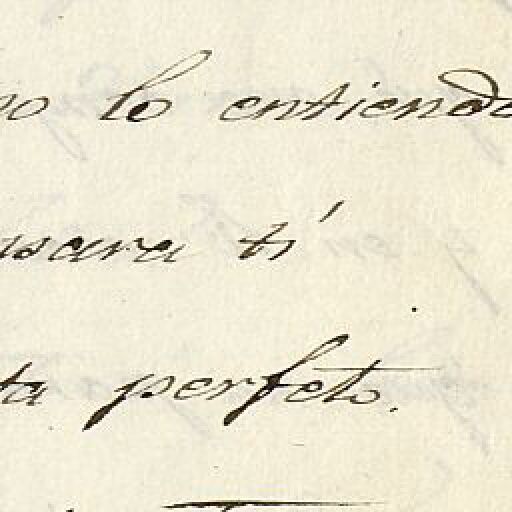 no lo entiendo
usara ti
ta perfeto.